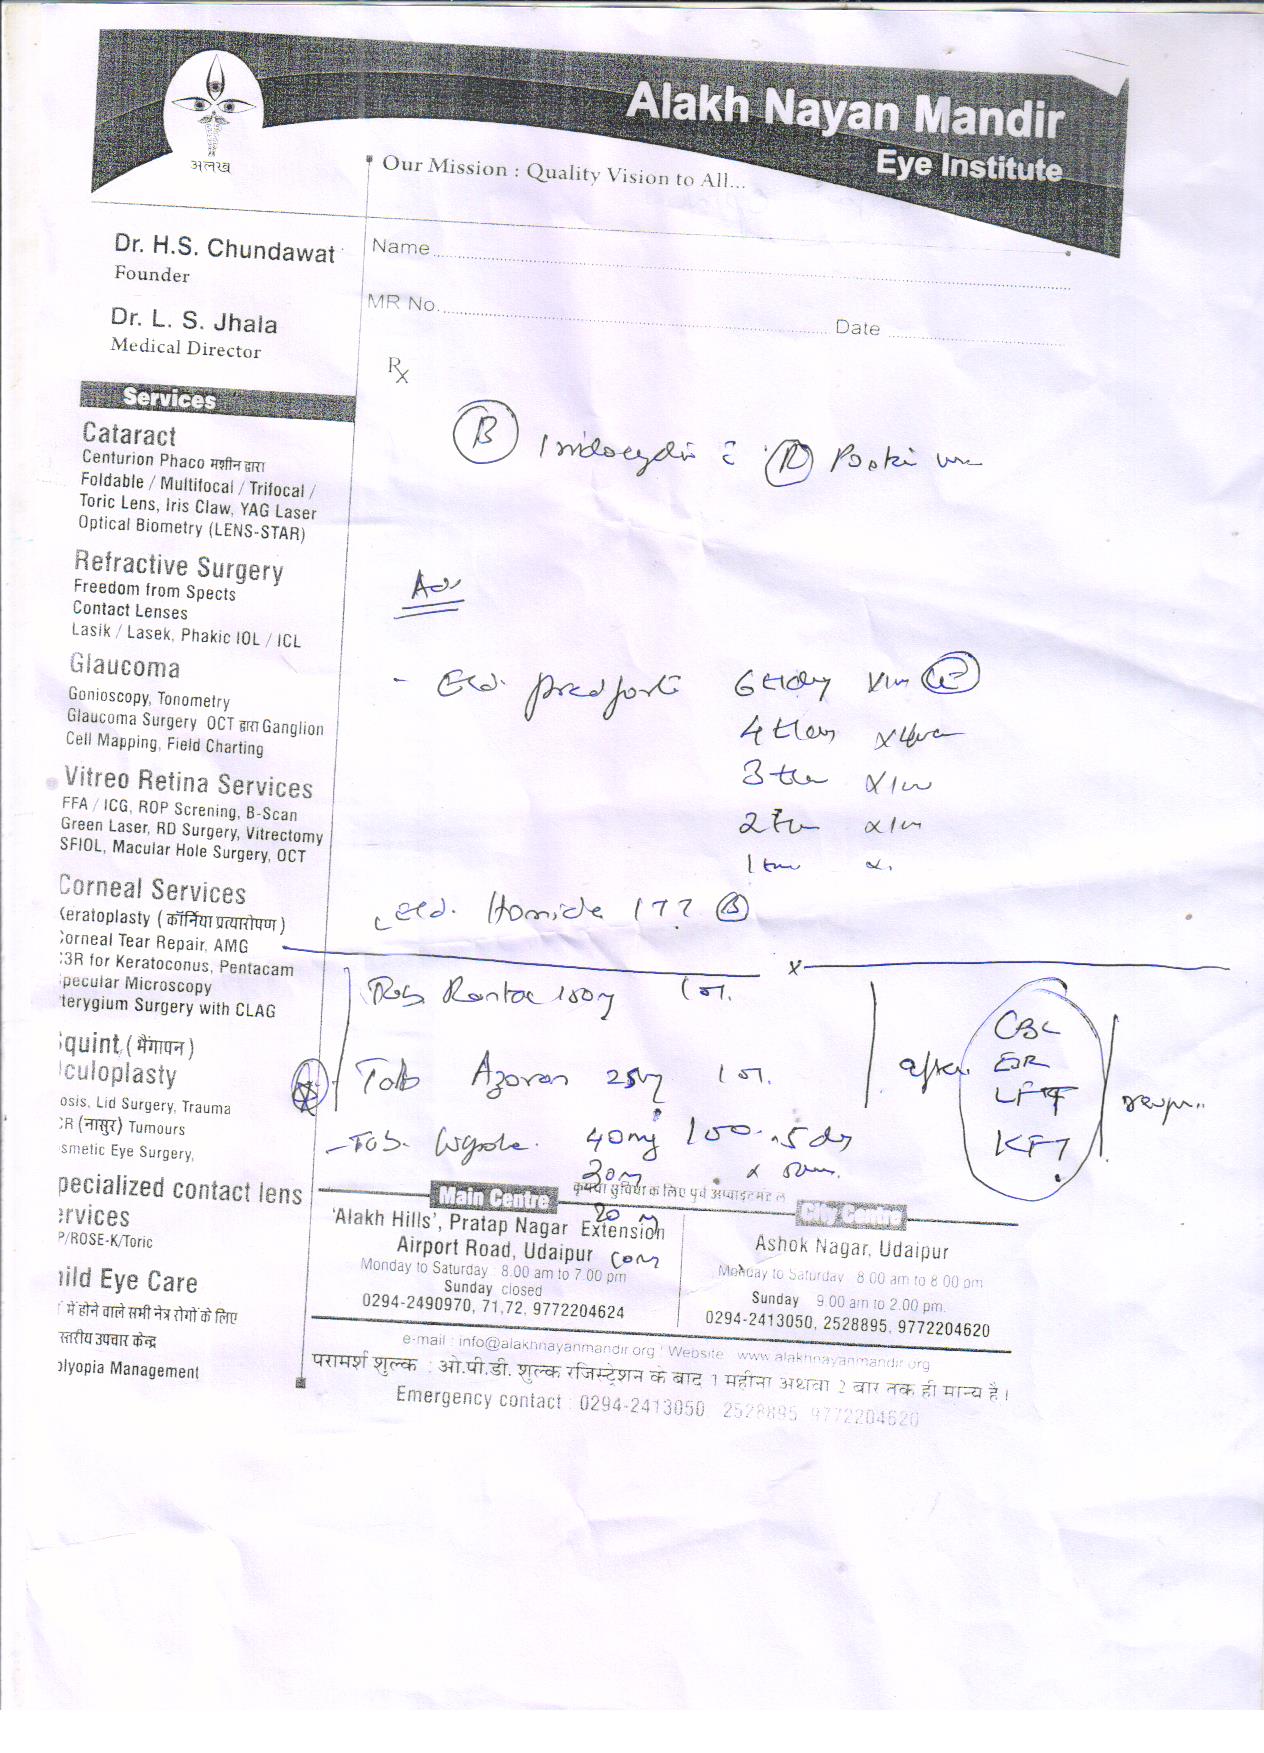 Alakh Nayan Mandir
Eye Institute
अलख
Our Mission : Quality Vision to All...
Dr. H.S. Chundawat
Founder
Dr. L. S. Jhala
Medical Director
Name
MR No.
Date
Rx
Services
Cataract
Centurion Phaco मशीन द्वारा
Foldable / Multifocal / Trifocal /
Toric Lens, Iris Claw, YAG Laser
Optical Biometry (LENS-STAR)
Refractive Surgery
Freedom from Spects
Contact Lenses
Lasik / Lasek, Phakic IOL / ICL
Glaucoma
Gonioscopy, Tonometry
Glaucoma Surgery OCT द्वारा Ganglion
Cell Mapping, Field Charting
Vitreo Retina Services
FFA / ICG, ROP Screning, B-Scan
Green Laser, RD Surgery, Vitrectomy
SFIOL, Macular Hole Surgery, OCT
Corneal Services
Keratoplasty ( कॉर्निया प्रत्यारोपण )
Corneal Tear Repair, AMG
C3R for Keratoconus, Pentacam
pecular Microscopy
terygium Surgery with CLAG
quint ( भैंगापन )
culoplasty
osis, Lid Surgery, Trauma
CR (नासुर) Tumours
smetic Eye Surgery,
pecialized contact lens
ervices
P/ROSE-K/Toric
hild Eye Care
में होने वाले सभी नेत्र रोगों के लिए
स्तरीय उपचार केन्द्र
blyopia Management
B R
Adv
pred forte 6 t
4 t
3 t x 1w
2 t x 1w
1 t x
Homide 1 B
x
Tab. Rantac 150mg
Tab Azoran 25mg
Tab. Wysolone 40mg
30m x
20 m
after
CBC
ESR
LFT
KFT
कृपया सुविधा के लिए पूर्व अपॉइंटमेंट लें
Main Centre
'Alakh Hills', Pratap Nagar Extension
Airport Road, Udaipur
Monday to Saturday 8.00 am to 7.00 pm
Sunday closed
0294-2490970, 71,72, 9772204624
City Centre
Ashok Nagar, Udaipur
Monday to Saturday 8.00 am to 8.00 pm
Sunday 9.00 am to 2.00 pm.
0294-2413050, 2528895, 9772204620
e-mail : info@alakhnayanmandir.org Website www.alakhnayanmandir.org
परामर्श शुल्क : ओ.पी.डी. शुल्क रजिस्ट्रेशन के बाद 1 महीना अथवा 2 बार तक ही मान्य है।
Emergency contact : 0294-2413050, 2528895, 9772204620